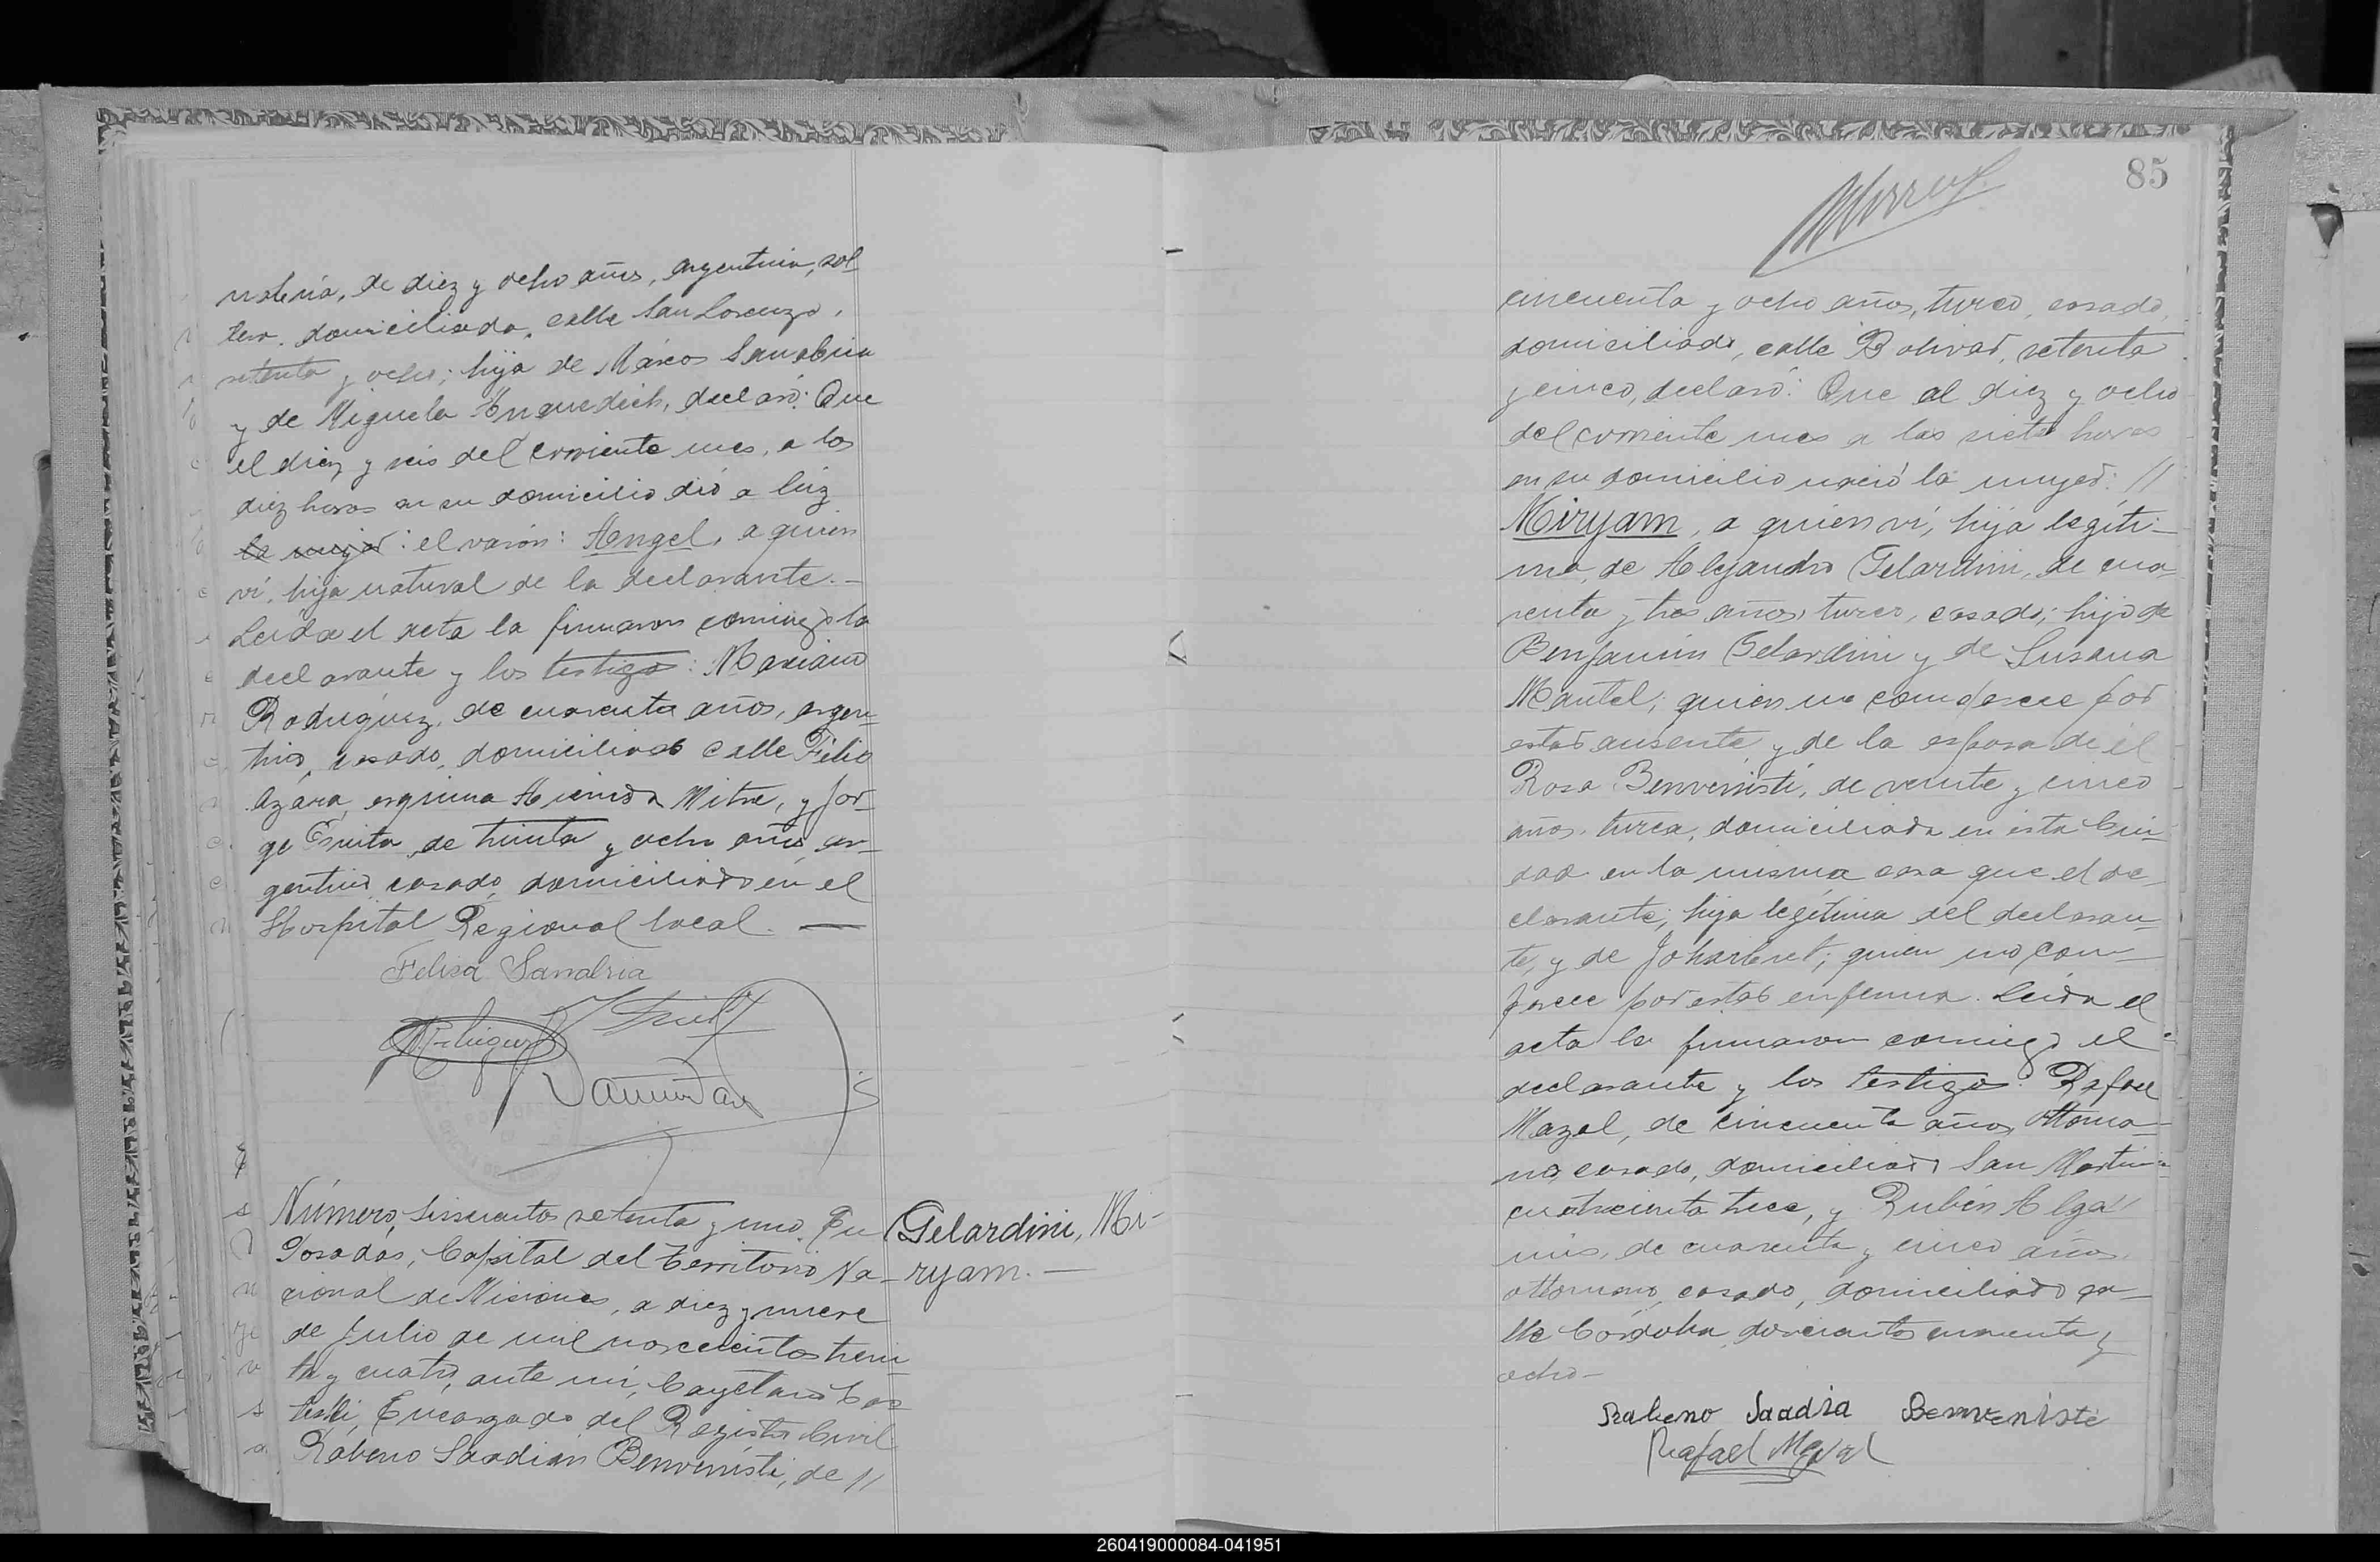 de diez y ocho años, argentina, sol
tera, domiciliada, calle San Lorenzo,
setenta y ocho; hija de Márcos Sanabria
y de Miguela declaró: Que
el diez y seis del corriente mes, a las
diez horas en su domicilio dió a lúz
la mujer: el varón: Angel, a quien
ví, hijo natural de la declarante.-
Leída el acta la firmaron conmigo la
declarante y los testigos: Mariano
Rodríguez, de cuarenta años, argen-
tino, casado, domiciliado calle Félix
Azara, esquina Avenida Mitre, y Jor-
ge de treinta y ocho años, ar-
gentino casado, domiciliado en el
Hospital Regional local. —
Felisa Sanabria
Número, seiscientos setenta y uno. En
Gelardini, Mi-
Posadas, Capital del Territorio Na-
ryam.-
cional de Misiones, a diez y nueve
de Julio de mil novecientos trein
ta y cuatro, ante mí, Cayetano Cas
telli, Encargado del Registro Civil
Rabeno Saadian Benvenisti, de //
85
cincuenta y ocho años, turco, casado,
domiciliado, calle Bolivar, setenta
y cinco, declaró: Que el diez y ocho
del corriente mes a las siete horas
en su domicilio nació la mujer: //
Miryam, a quien ví, hija legíti-
ma, de Alejandro Gelardini, de cua-
renta y tres años, turco, casado; hijo de
Benjamin Gelardini y de Susana
Mantel; quien no comparece por
estar ausente, y de la esposa de él
Rosa Benvenisti, de veinte y cinco
años, turca, domiciliada en esta Ciu-
dad en la misma casa que el de-
clarante; hija legítima del declaran-
te, y de quien no com-
parece por estar enferma. Leída el
acta la firmaron conmigo el
declarante y los testigos: Rafael
Mazal, de cincuenta años, ottoma-
no, casado, domiciliado San Martin
cuatrocientos trece, y Rubén Alga//
de cuarenta y cinco años,
ottomano, casado, domiciliado ca-
lle Córdoba, doscientos cuarenta y
ocho-
Rabeno Saadia Benveniste
Rafael Mazal
260419000084-041951